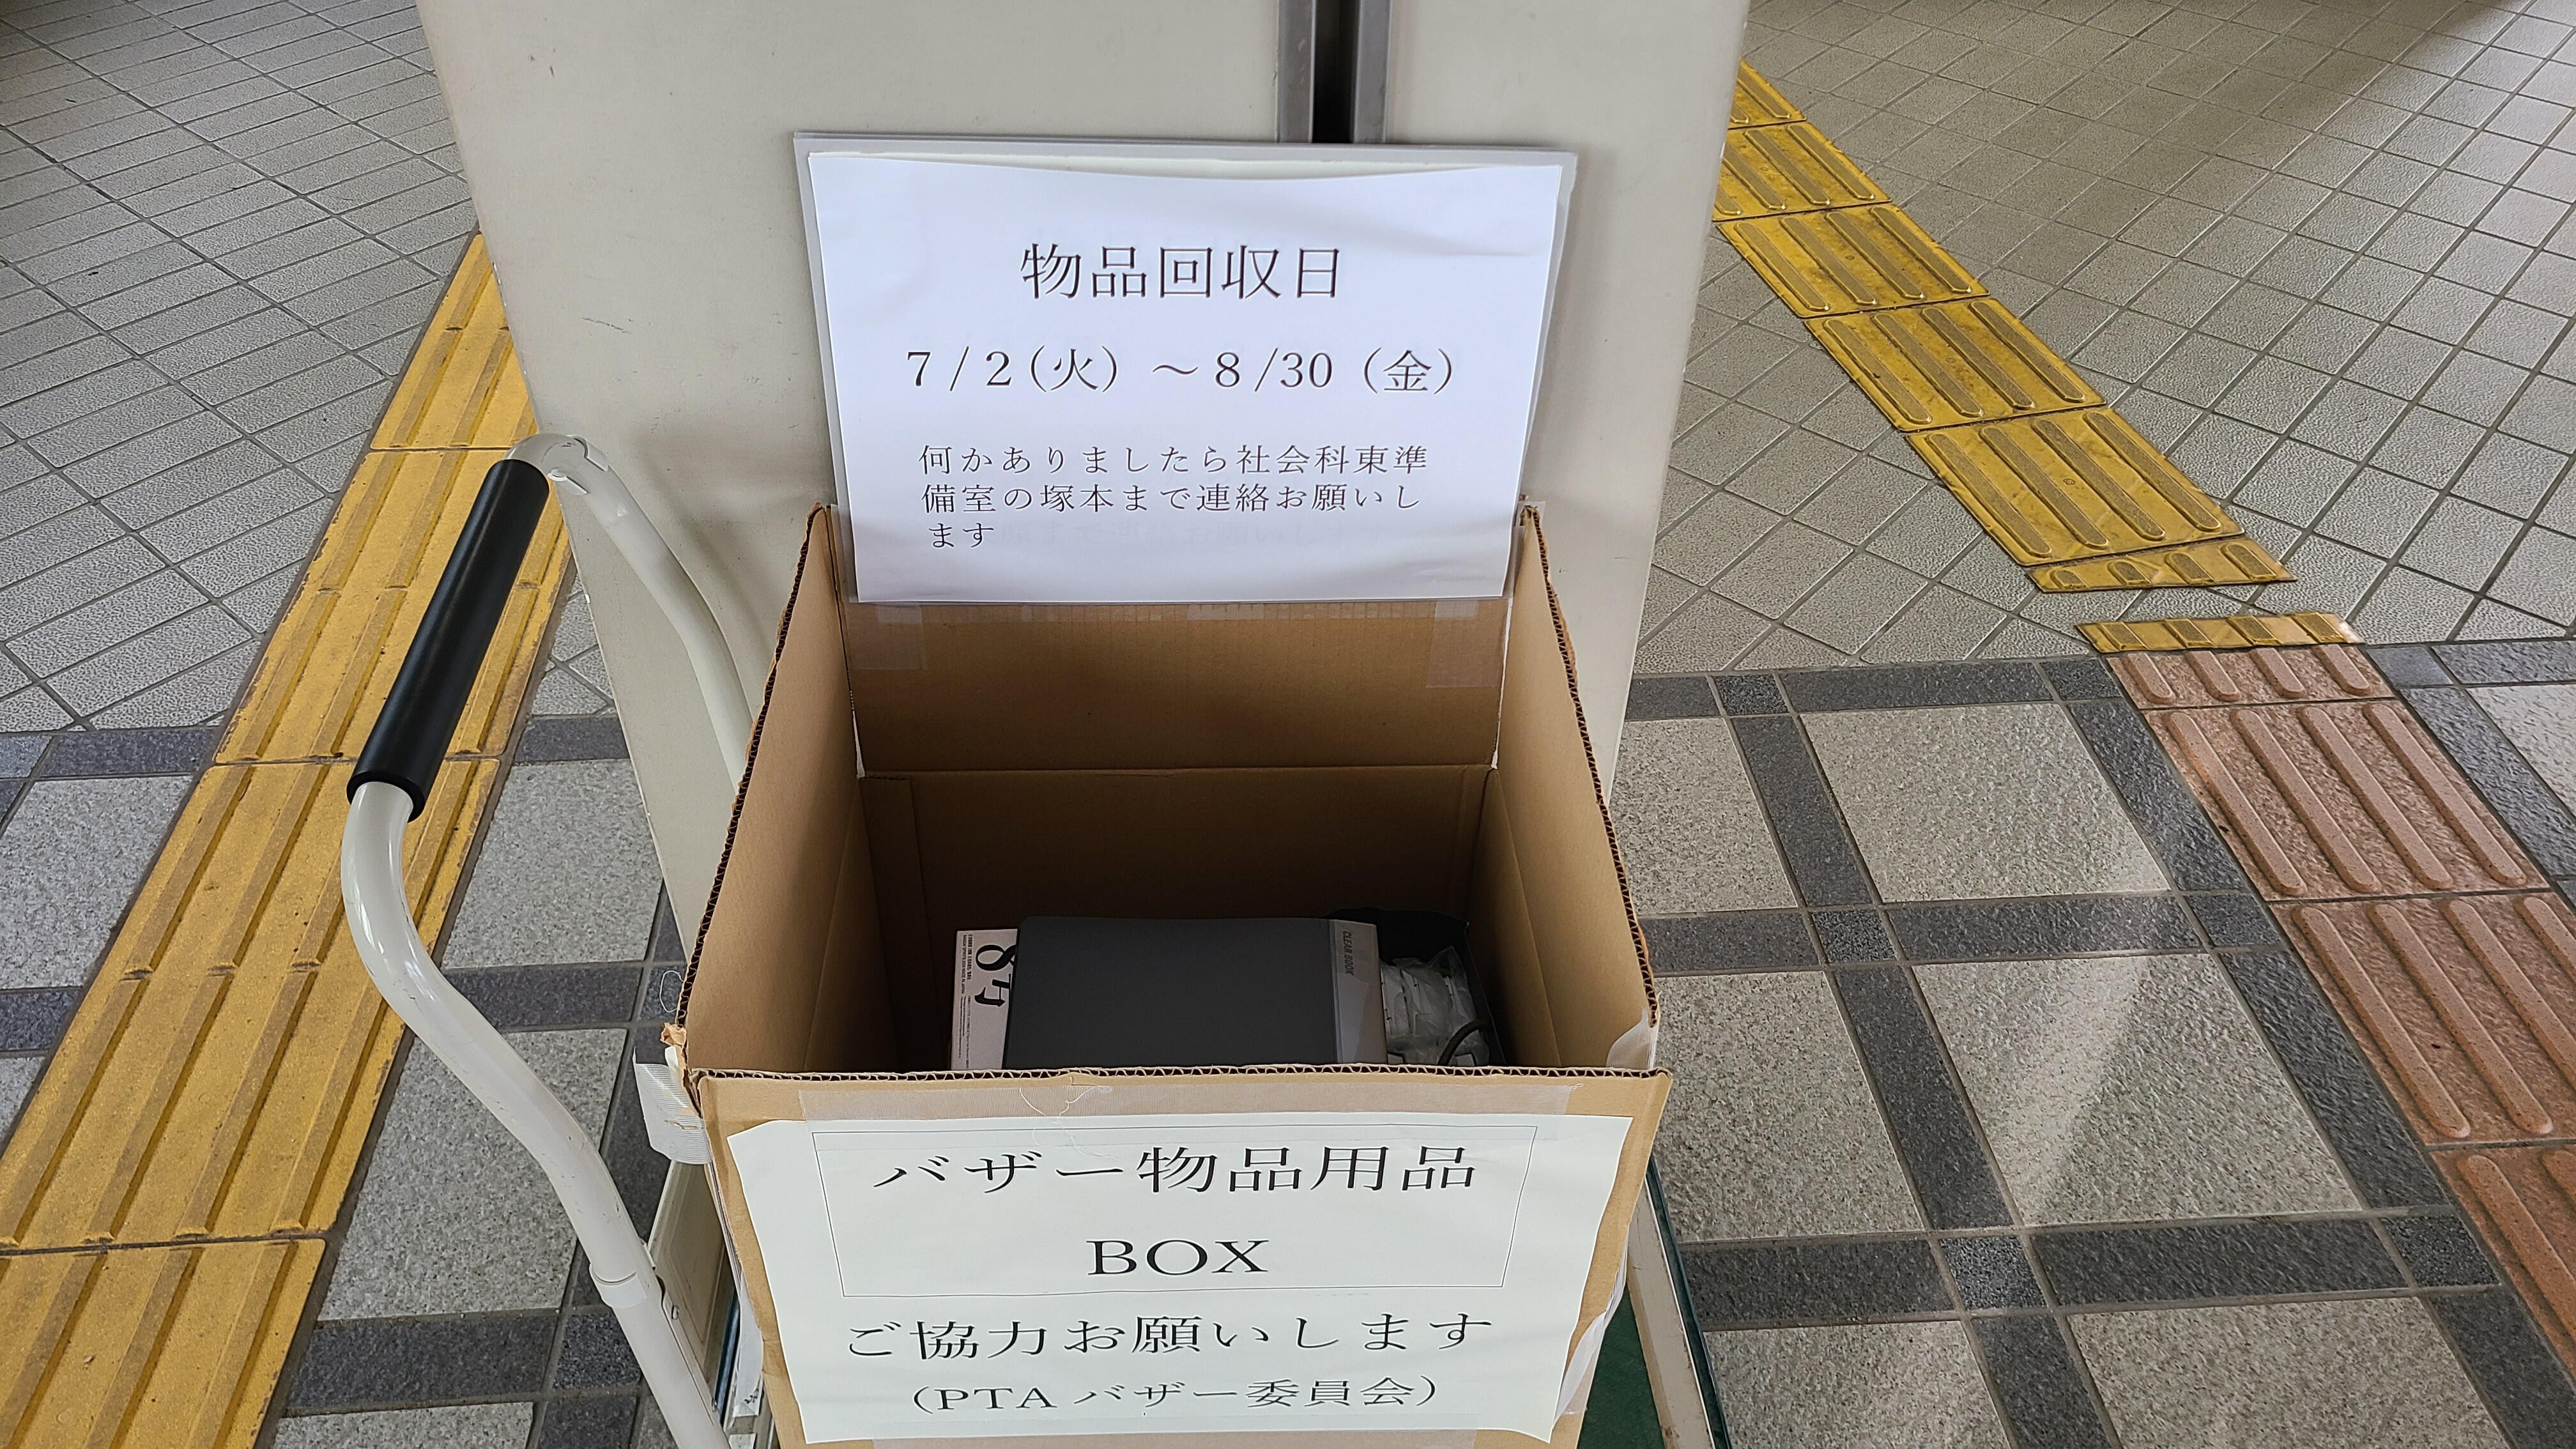 物品回収日
7/2(火)～8/30(金)
何かありましたら社会科東準
備室の塚本まで連絡お願いし
ます
CLEAR BOOK
バザー物品用品
BOX
ご協力お願いします
(PTAバザー委員会)